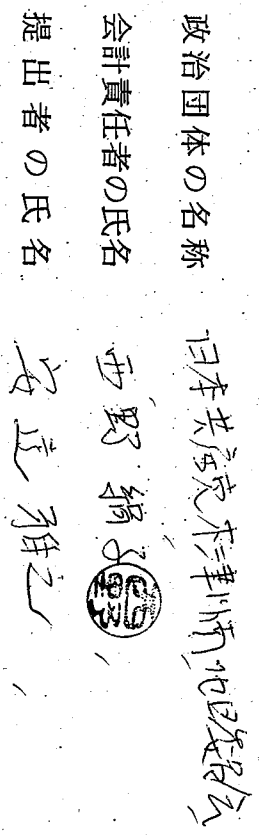 政治団体の名称 日本共産党木津川南地区委員会
会計責任者の氏名 西野 絹子
提出者の氏名 安達雅之